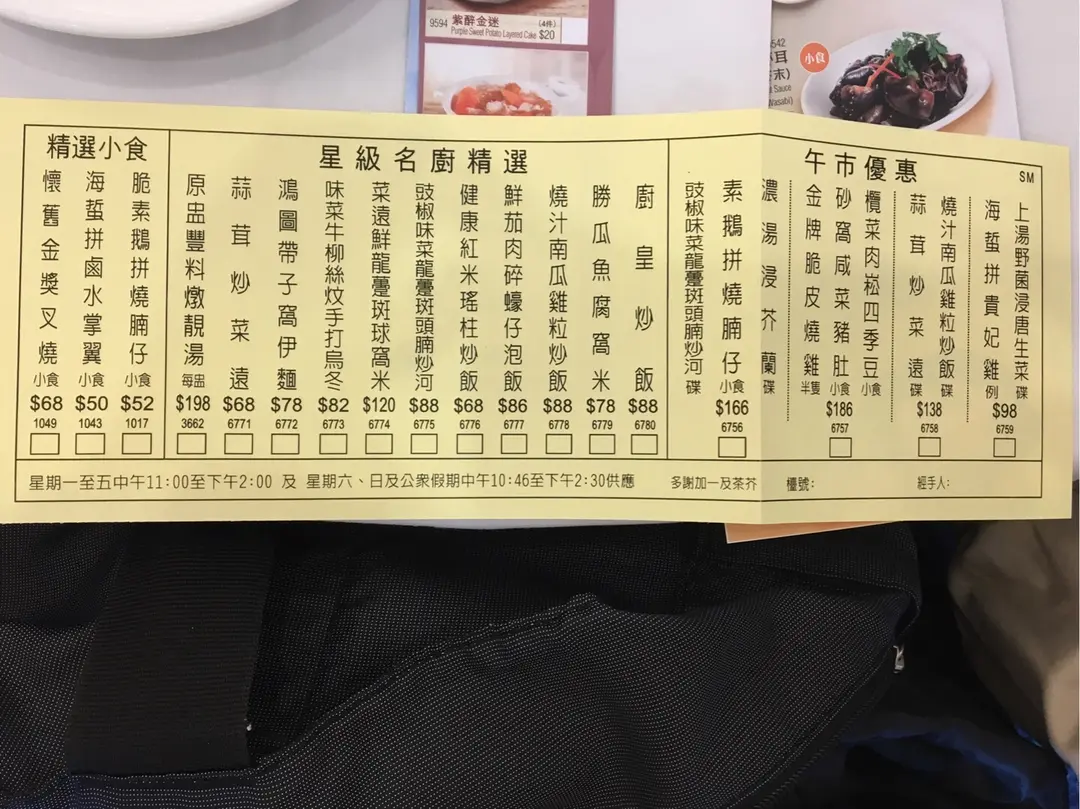 9594 紫醉金迷 (4件)
Purple Sweet Potato Layered Cake $20
小食
Sauce
Wasabi)
精選小食
懷舊金獎叉燒 小食 $68 1049
海蜇拼鹵水掌翼 小食 $50 1043
脆素鵝拼燒腩仔 小食 $52 1017
星級名廚精選
原盅豐料燉靚湯 每盅 $198 3662
蒜茸炒菜遠 $68 6771
鴻圖帶子窩伊麵 $78 6772
味菜牛柳絲炆手打烏冬 $82 6773
菜遠鮮龍躉斑球窩米 $120 6774
豉椒味菜龍躉斑頭腩炒河 $88 6775
健康紅米瑤柱炒飯 $68 6776
鮮茄肉碎蠔仔泡飯 $86 6777
燒汁南瓜雞粒炒飯 $88 6778
勝瓜魚腐窩米 $78 6779
廚皇炒飯 $88 6780
午市優惠
SM
豉椒味菜龍躉斑頭腩炒河 碟
素鵝拼燒腩仔 小食 $166 6756
濃湯浸芥蘭 碟
金牌脆皮燒雞 半隻
砂窩咸菜豬肚 小食 $186 6757
欖菜肉崧四季豆 小食
蒜茸炒菜遠 碟
燒汁南瓜雞粒炒飯 碟
$138 6758
海蜇拼貴妃雞 例
上湯野菌浸唐生菜 碟
$98 6759
星期一至五中午11:00至下午2:00 及 星期六、日及公眾假期中午10:46至下午2:30供應
多謝加一及茶芥
檯號:
經手人: